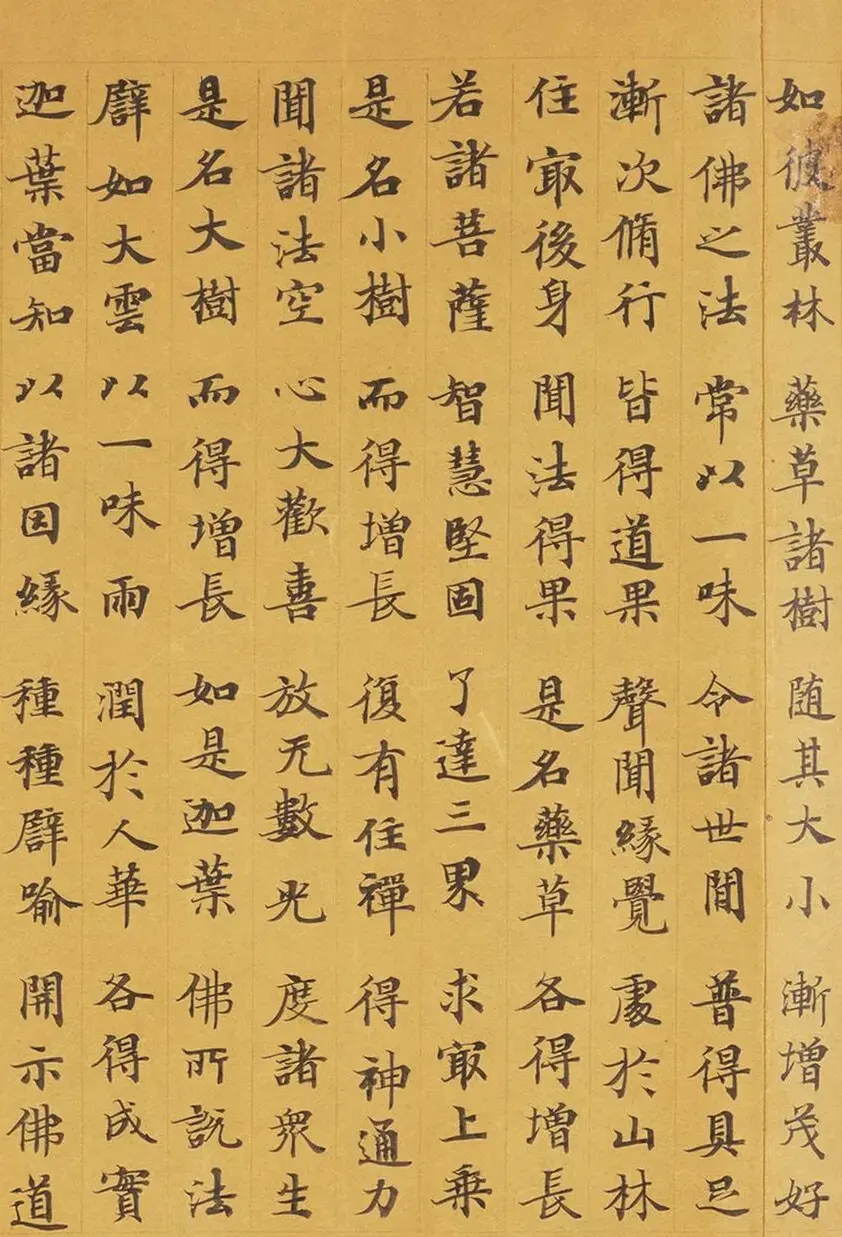 如彼叢林 藥草諸樹 随其大小 漸增茂好
諸佛之法 常以一味 令諸世間 普得具足
漸次脩行 皆得道果 聲聞緣覺 處於山林
住冣後身 聞法得果 是名藥草 各得增長
若諸菩薩 智慧堅固 了達三界 求冣上乗
是名小樹 而得增長 復有住禪 得神通力
聞諸法空 心大歡喜 放无數光 度諸眾生
是名大樹 而得增長 如是迦葉 佛所說法
譬如大雲 以一味雨 潤於人華 各得成實
迦葉當知 以諸因緣 種種譬喻 開示佛道